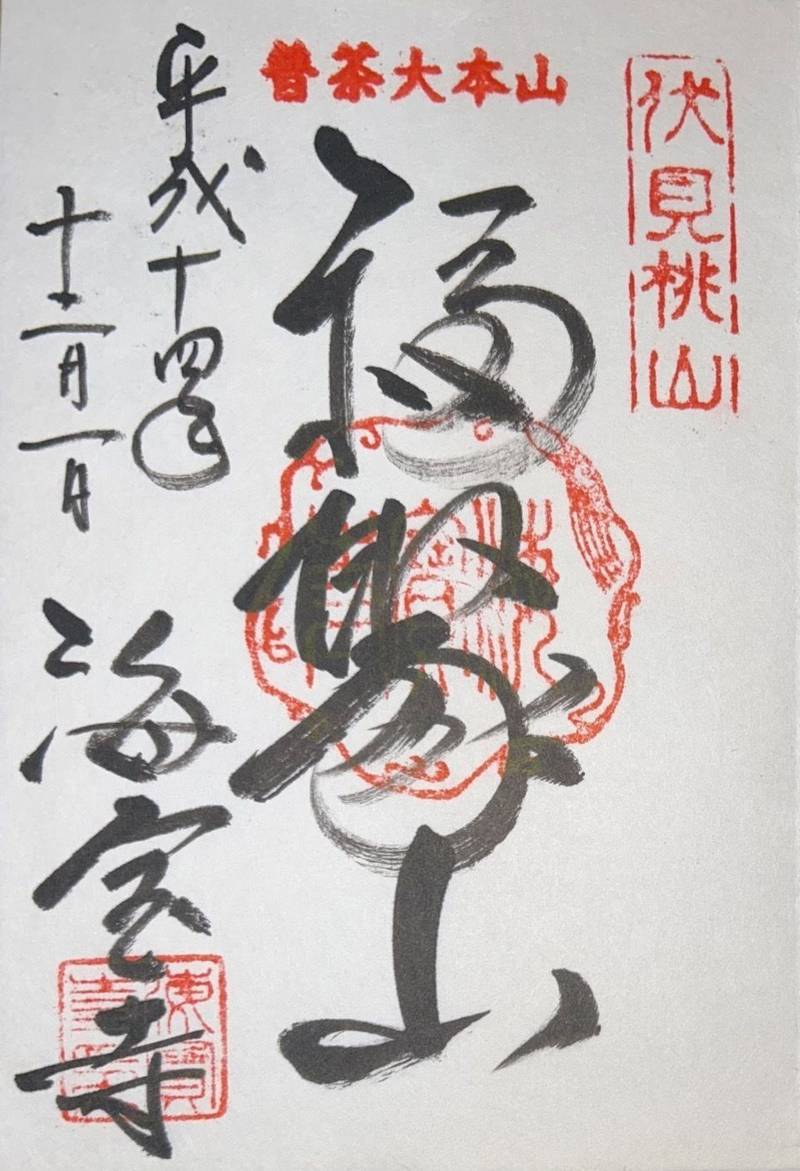 伏見桃山
普茶大本山
福聚山
平成十四年
十二月一日
海宝寺